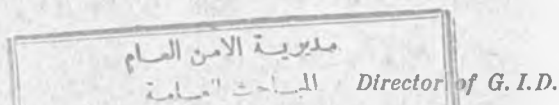 مديرية الامن العام
المباحث العامة Director of G. I. D.